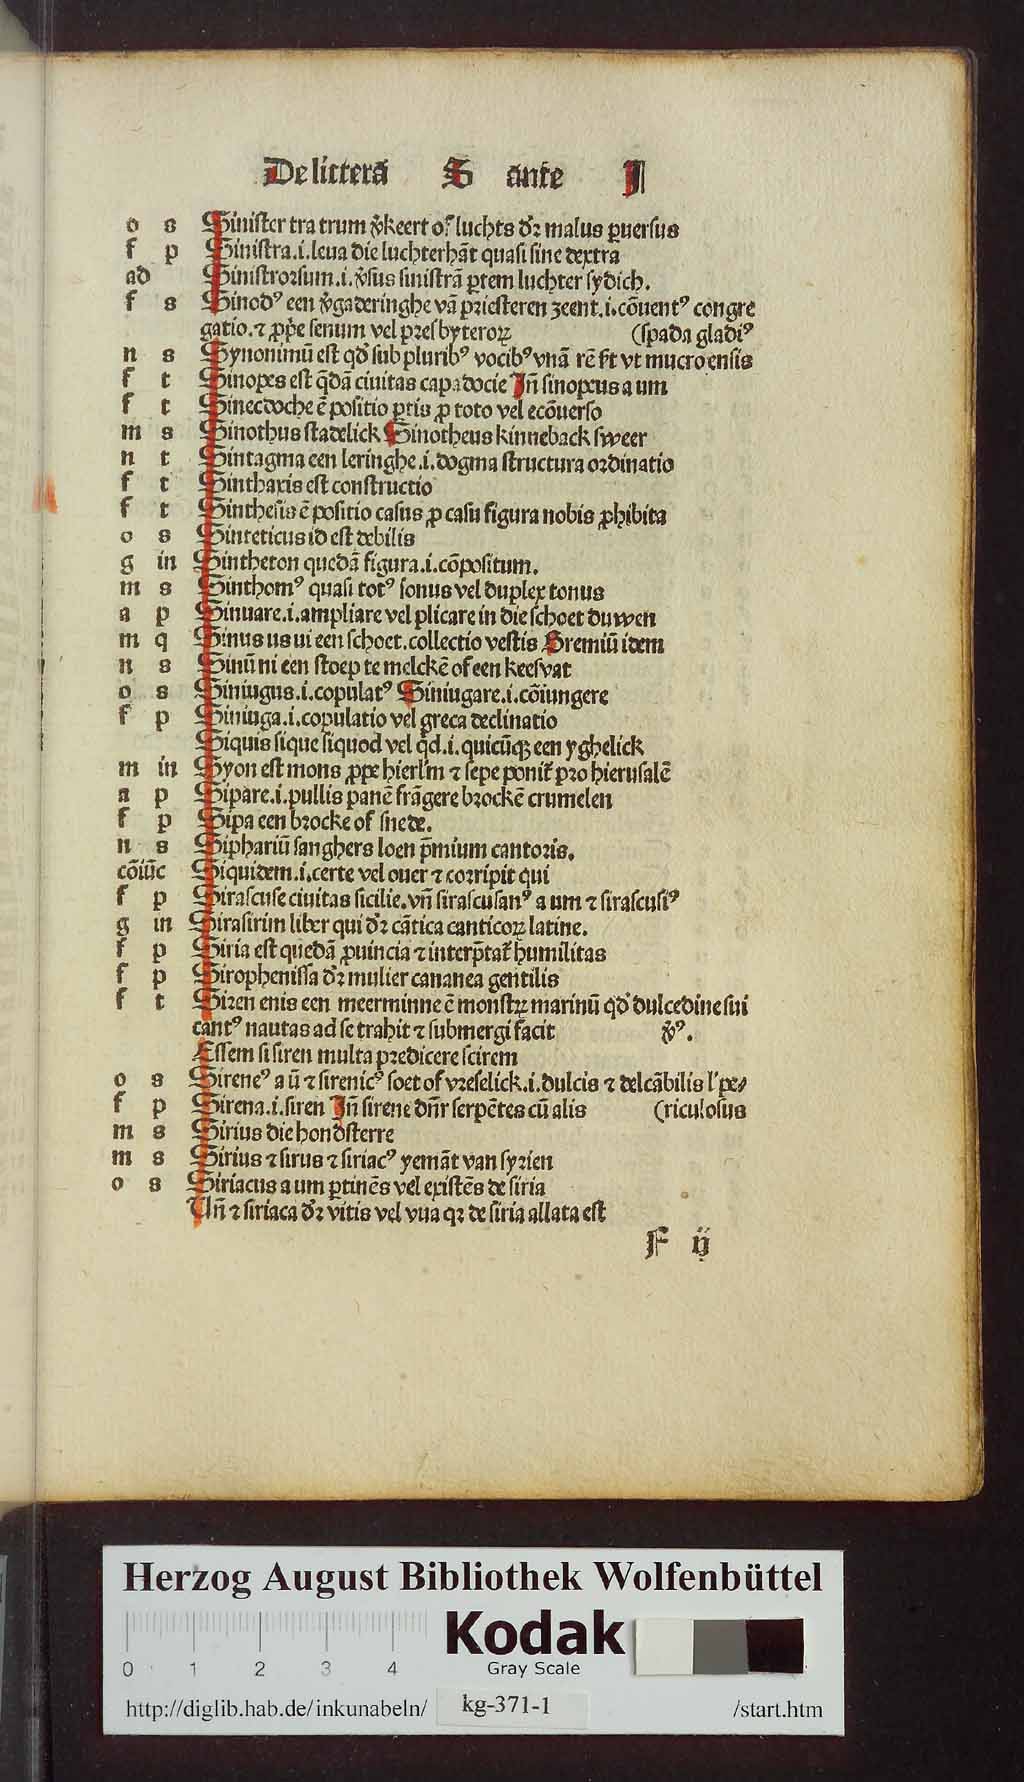 De litterā S ante I
o s Sinister tra trum v̄keert of luchts dr̄ malus ꝑuersus
f p Sinistra.i.leua die luchterhāt quasi sine dextra
ad Sinistrorsum.i.v̄sus sinistrā ꝑtem luchter sydich.
f s Sinodꝰ een v̄gaderinghe vā priesteren zeent.i.cōuentꝰ congre
gatio.⁊ ꝓpͥe senum vel presbyteroꝝ (spada gladiꝰ
n s Synonimū est qd̄ sub pluribꝰ vocibꝰ vnā rē sͥt vt mucro ensis
f t Sinopes est q̄dā ciuitas capadocie Jn̄ sinopeus a um
f t Sinecdoche ē positio ꝑtis ꝓ toto vel ecōuerso
m s Sinothus stadelick Sinotheus kinneback sweer
n t Sintagma een leringhe.i.dogma structura ordinatio
f t Sinthaxis est constructio
f t Sinthesis ē positio casus ꝓ casu figura nobis ꝓhibita
o s Sinteticus id est debilis
g in Sintheton quedā figura.i.cōpositum.
m s Sinthomꝰ quasi totꝰ sonus vel duplex tonus
a p Sinuare.i.ampliare vel plicare in die schoet duwen
m q Sinus us ui een schoet.collectio vestis Gremiū idem
n s Sinū ni een stoep te melckē of een keesvat
o s Siniugus.i.copulatꝰ Siniugare.i.cōiungere
f p Siniuga.i.copulatio vel greca declinatio
Siquis sique siquod vel qͥd.i.quicūqꝫ een yghelick
m in Syon est mons ꝓpe hierlʼm ⁊ sepe ponitͬ pro hierusalē
a p Sipare.i.pullis panē frāgere brockē crumelen
f p Sipa een brocke of snede.
n s Siphariū sanghers loen p̄mium cantoris.
cōiūc Siquidem.i.certe vel ouer ⁊ corripit qui
f p Sirascuse ciuitas sicilie.vn̄ sirascusanꝰ a um ⁊ sirascusiꝰ
g in Sirasirim liber qui dr̄ cātica canticoꝝ latine.
f p Siria est quedā ꝓuincia ⁊ interp̄tatͬ humilitas
f p Sirophenissa dr̄ mulier cananea gentilis
f t Siren enis een meerminne ē monstꝝ marinū qd̄ dulcedine sui
cantꝰ nautas ad se trahit ⁊ submergi facit v̄ꝰ.
Essem si siren multa predicere scirem
o s Sirenꝰ a ū ⁊ sirenicꝰ soet of vreselick.i.dulcis ⁊ delcābilis lʼ pe⸗
f p Sirena.i.siren Jn̄ sirene dn̄r serpētes cū alis (riculosus
m s Sirius die hondsterre
m s Sirius ⁊ sirus ⁊ siriacꝰ yemāt van syrien
o s Siriacus a um ꝑtinēs vel existēs de siria
Vn̄ ⁊ siriaca dr̄ vitis vel vua qꝛ de siria allata est
F ij
Herzog August Bibliothek Wolfenbüttel
0 1 2 3 4
Kodak
Gray Scale
http://diglib.hab.de/inkunabeln/ kg-371-1 /start.htm